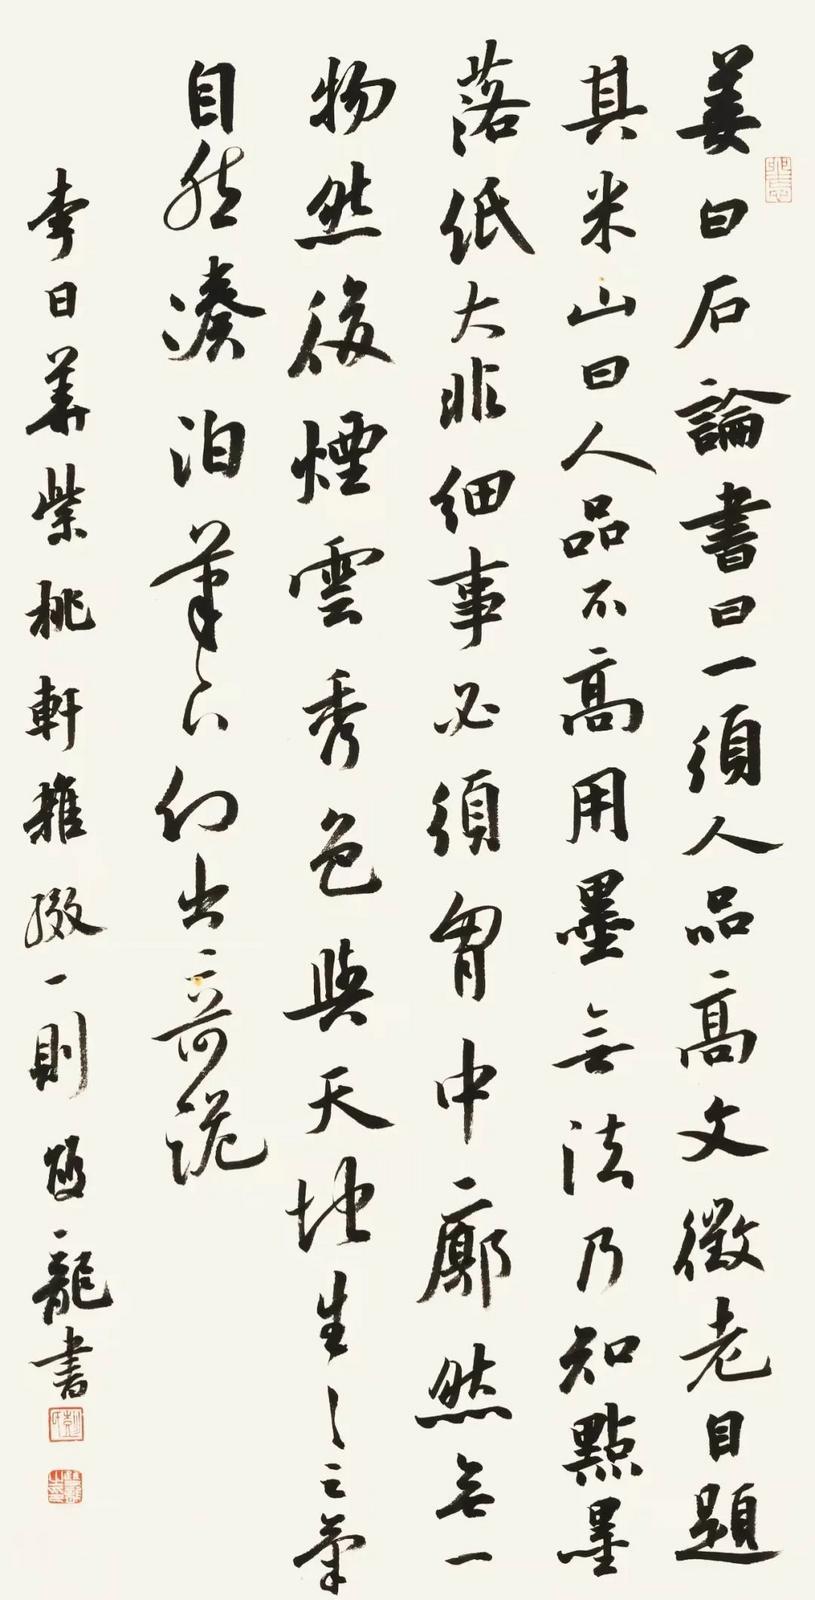 姜白石論書曰一須人品高文徵老自題
其米山曰人品不高用墨無法乃知點墨
落紙大非細事必須胷中廓然無一
物然後煙雲秀色與天地生〻之氣
自然湊泊筆下幻出奇詭
李日華紫桃軒雜綴一則 龍書